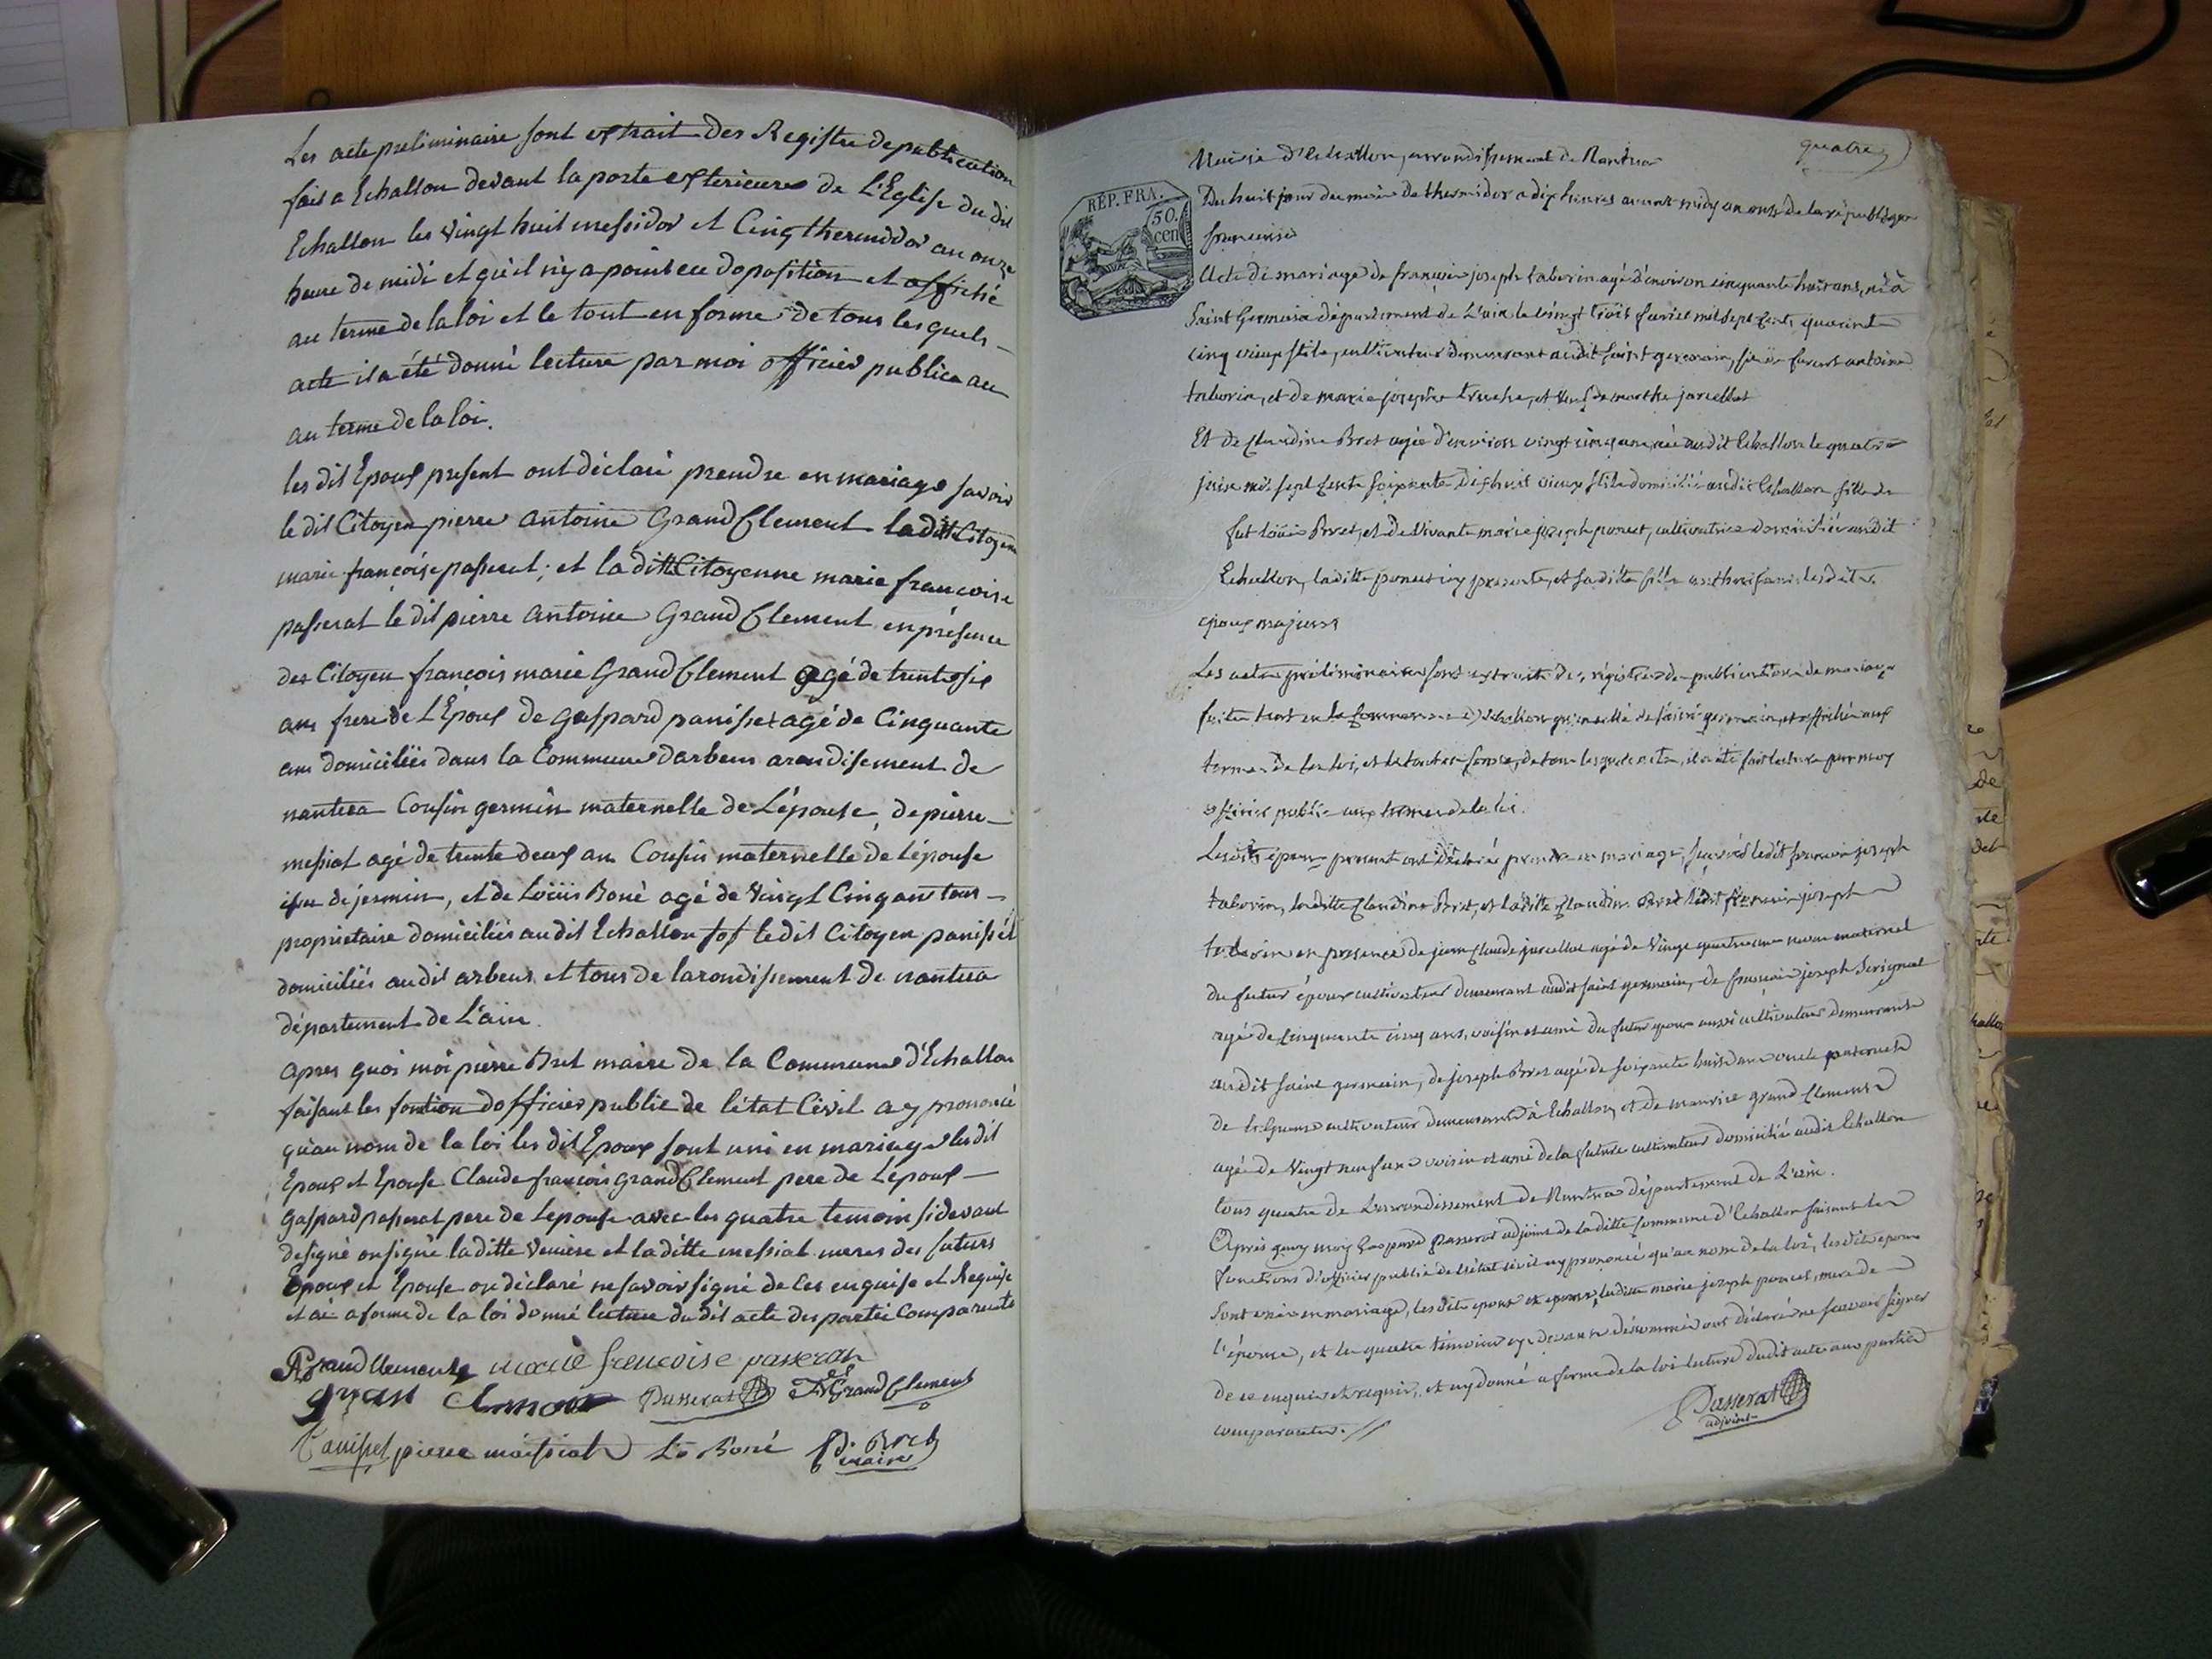 Les acte preliminaire sont extrait des Registre de publication
fait a Echallon devant la porte exterieure de L'Eglise du dit
Echallon les vingt huit messidor et Cinq thermidor an onze
heure de midi et qu'il n'y a point eu doposition et affiché
au terme de la loi et le tout en forme de tous les quels
acte il a été donné lecture par moi officier publica au
au terme de la loi.
les dit Epoux present ont déclaré prendre en mariage savoir
le dit Citoyen pierre antoine Grand Clement la ditte Citoyenne
marie françoise passerat; et la ditte Citoyenne marie francoise
passerat le dit pierre antoine Grand Clement en présence
des Citoyen françois marie Grand Clement agé de trente six
ans frere de L'Epoux de gaspard panisset agé de Cinquante
ans domiciliés dans la Commune darbens arondisement de
nantua Cousin germin maternelle de L'épouse, de pierre
messiat agé de trente deux an Cousin maternelle de lépouse
isu de jermin, et de Loüis Boné agé de vingt Cinq an tous
proprietaire domiciliés au dit Echallon le dit Citoyen panisset
domiciliés au dit arbens et tous de larondissement de nantua
département de L'ain.
apres quoi moi pierre Bret maire de la Commune d'Echallon
faisant les fontion dofficier public de létat Civil ay prononcé
qu'au nom de la loi les dit Epoux sont uni en mariage les dit
Epoux et Epouse Claude françois grand Clement pere de Lépoux
gaspard passerat pere de Lepouse avec les quatre temoin sidevant
designé on signé la ditte et la ditte messiat meres des futurs
Epoux et Epouse on déclaré ne savoir signé de ces enquise et Requise
et ai a forme de la loi donné lecture du dit acte des partie Comparente
Grand Clement marie françoise passerat
grand Clement Passerat f.m. Grand Clement
Panisset pierre maissiat Ls Boné p. Bret
maire
quatre
Mairie d'Echallon, arrondissement de Nantua
RÉP. FRA.
50.
cen
Du huit jour du mois de thermidor a dix heures avant midy an onze de la république
francaise
Acte de mariage de françois joseph taborin agé d'environ cinquante huit ans, né à
Saint Germain département de L'ain le vingt trois fevrier mil sept cents quarante
cinq vieux stile, cultivateur demeurant audit saint germain, fils de antoine
taborin, et de marie josephte truche, et veuf de marthe jarcellat
Et de Claudine Bret agée d'environ vingt cinq ans née audit Echallon le quatre
juin mil sept cents soixante dix huit vieux stile domiciliée audit Echallon fille de
fut loüis Bret, et de vivante marie joseph poncet, cultivatrice domiciliée audit
Echallon, laditte poncet icy presente, et sa ditte fille authorisant lesdits
epoux majeurs
Les actes préliminaires sont extraits des régistres de publications de mariage
faites tant en la commune d'Echallon qu'en celle de saint germain, et affichés aux
termes de la loi, et le tout en forme, de tous lesquels actes, il a été fait lecture par moy
officier public aux termes de la loi.
Lesdits époux present ont déclaré prendre en mariage, sçavoir ledit francois joseph
taborin, laditte Claudine Bret, et laditte Claudine Bret ledit françois joseph
taborin en presence de jean Claude jarcellat agé de vingt quatre ans neveu maternel
du futur époux cultivateur demeurant audit saint germain, de francois joseph Serignat
agé de cinquante cinq ans, voisin et ami du futur epoux aussi cultivateur demeurant
audit saint germain, de joseph Bret agé de soixante huit ans oncle paternel
de l'épouse cultivateur demeurant à Echallon, et de maurice grand Clement
agé de vingt neuf ans voisin et ami de la future cultivateur domicilié audit Echallon
tous quatre de L'arrondissement de Nantua département de L'ain.
Après quoy moy Gaspard Passerat adjoint de laditte commune d'Echallon faisant les
fonctions d'officier public de l'état civil ay prononcé qu'au nom de la loi, lesdits epoux
sont unis en mariage, lesdits epoux et épouse, ladite marie joseph poncet, mere de
l'épouse, et les quatre témoins cy devant dénommés ont déclaré ne scavoir signer
de ce enquis et requis, et ay donné a forme de la loi lecture dudit acte aux parties
comparantes.
Passerat
adjoint